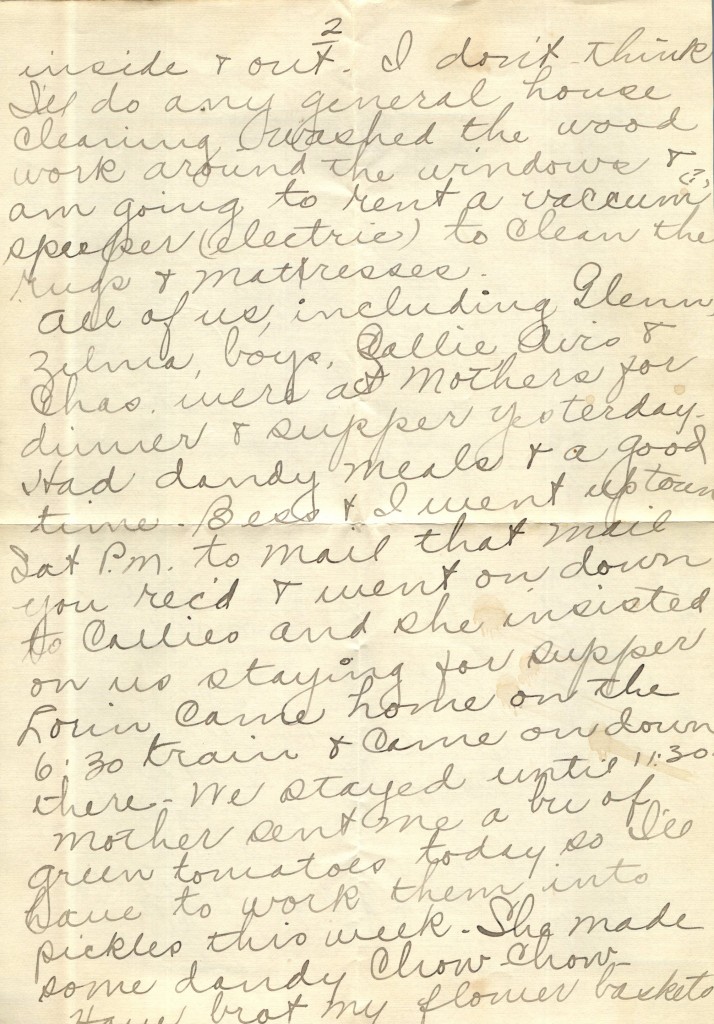 2
inside & out. I don't think
I'll do any general house
cleaning. Washed the wood
work around the windows &
(?)
am going to rent a vaccum
speeper (electric) to clean the
rugs & mattresses.
All of us, including Glenn,
Zelma, boys, Callie, Avis &
Chas. were at Mothers for
dinner & supper yesterday.
Had dandy meals & a good
time. Bess & I went uptown
Sat P.M. to mail that mail
you rec'd & went on down
to Callies and she insisted
on us staying for supper
Lorin came home on the
6:30 train & came on down
there. We stayed until 11:30.
Mother sent me a bu of
green tomatoes today so I'll
have to work them into
pickles this week. She made
some dandy Chow Chow
Have brot my flower baskets